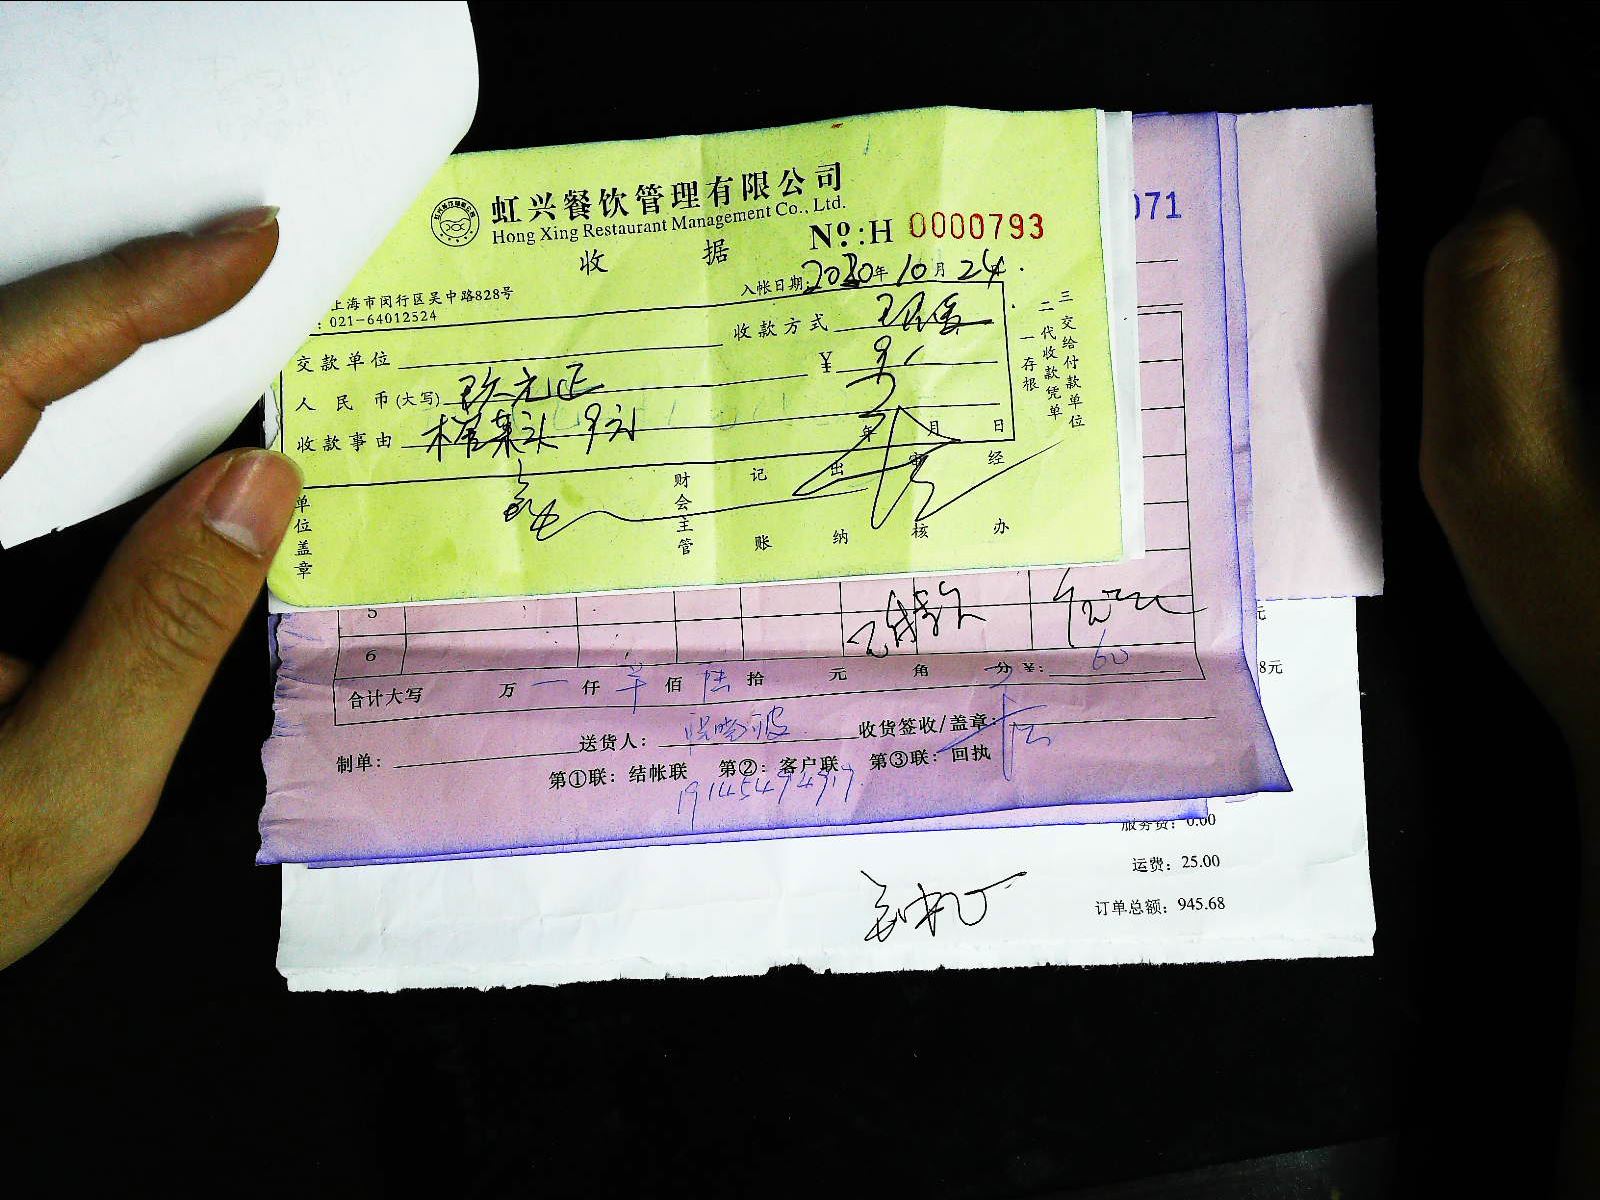 虹兴餐饮管理有限公司
Hong Xing Restaurant Management Co., Ltd.
收 据
Nº:H 0000793
071
上海市闵行区吴中路828号
: 021-64012524
入帐日期: 2020年10月24
交款单位
收款方式 现金
人民币(大写) 玖元正
¥ 9
收款事由 榨菜头 9元
年 月 日
一存根
二代收款凭单
三交给付款单位
单位盖章
财会主管
记账
出纳
审核
经办
元
5
6
8元
合计大写 万 一 仟 佰 陆 拾 元 角 分 ¥: 60
制单:
送货人:
收货签收/盖章:
第①联: 结帐联 第②: 客户联 第③联: 回执
19145494917
服务费: 0.00
运费: 25.00
订单总额: 945.68